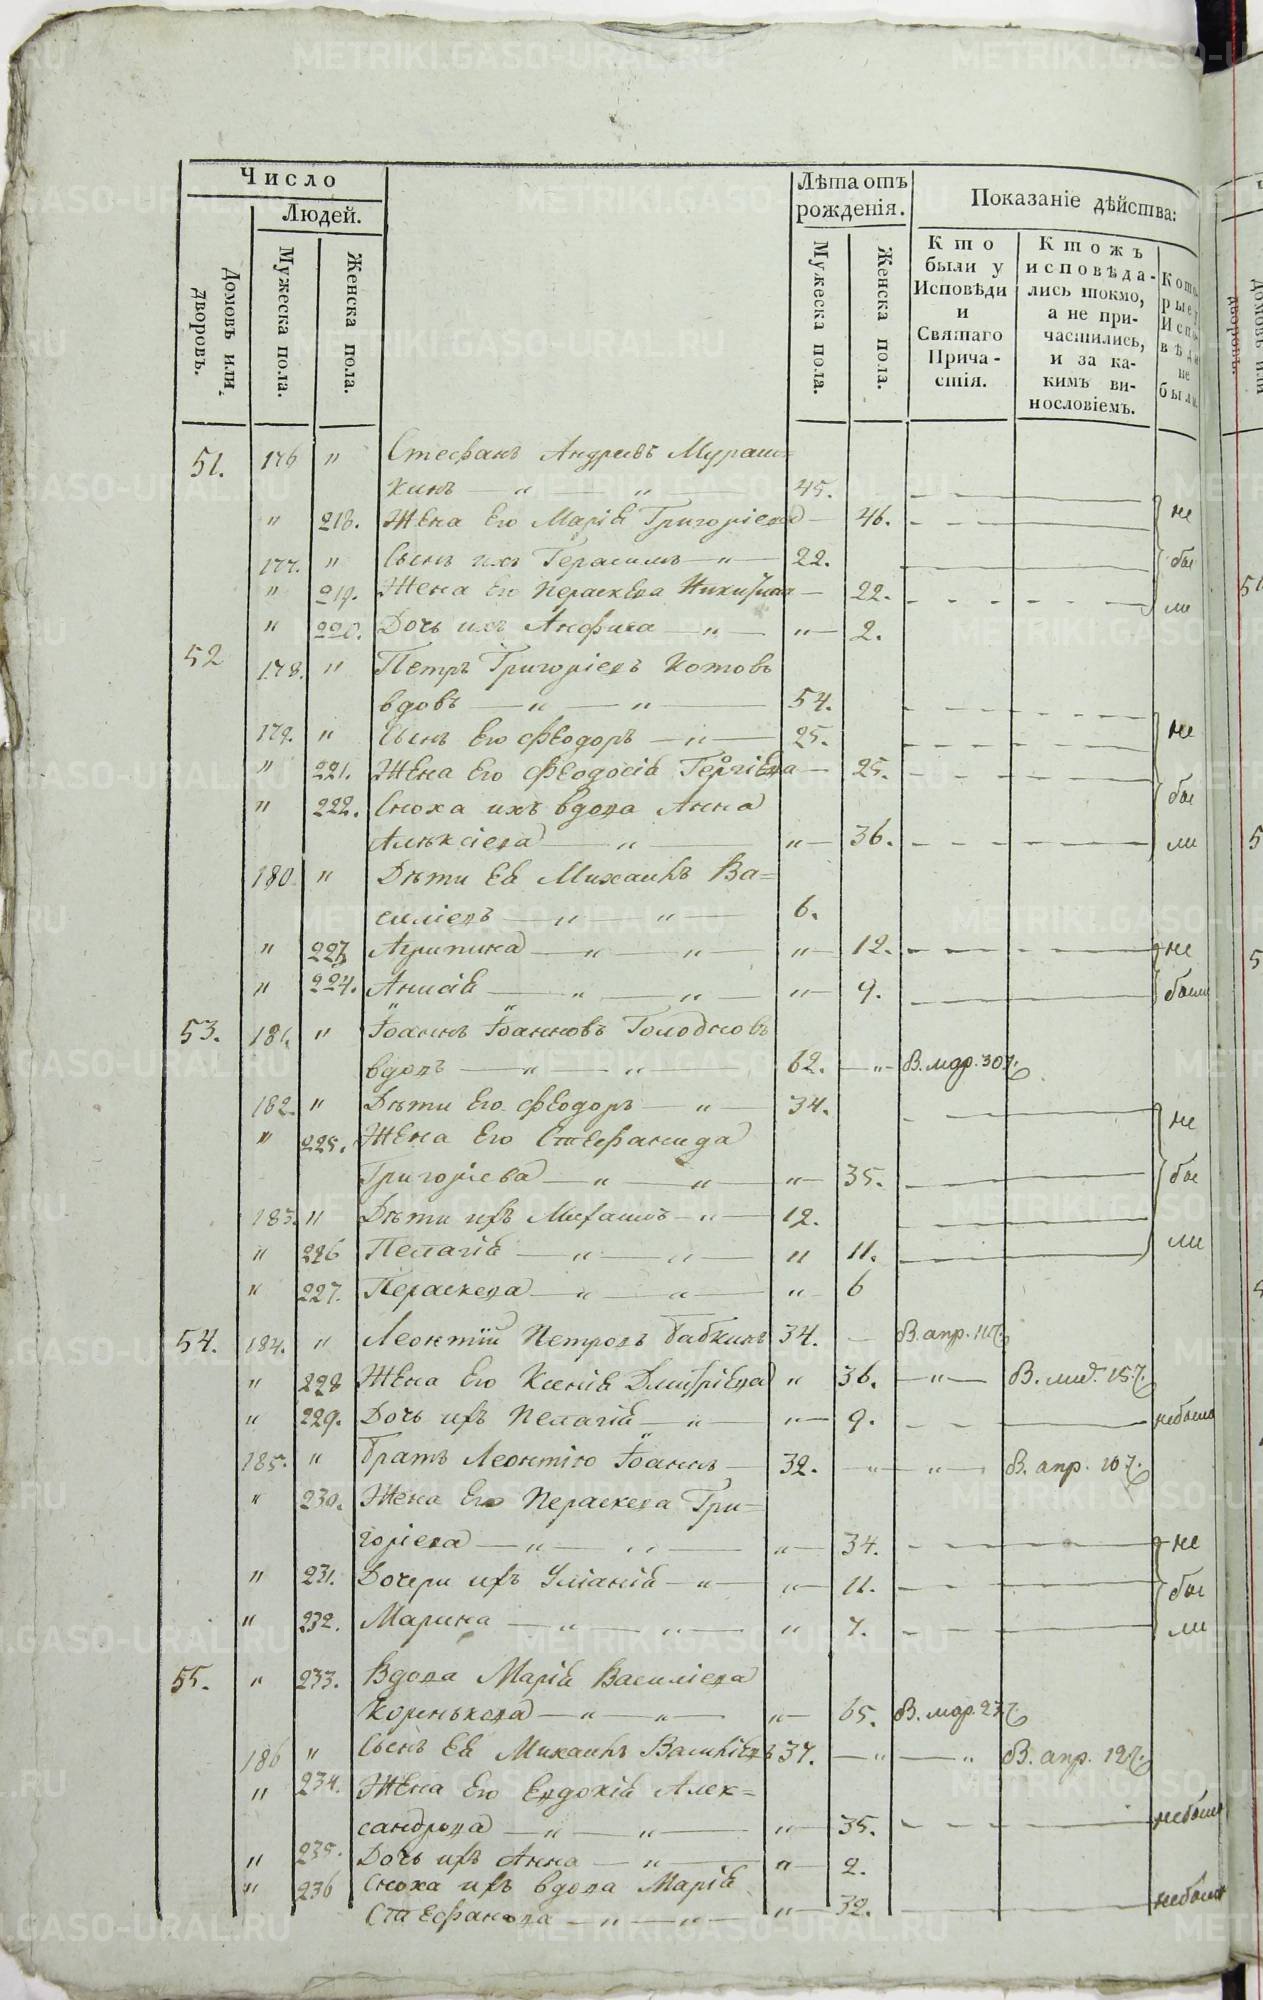 Число
Людей.
Домовъ или дворовъ.
Мужеска пола.
Женска пола.
Лѣта отъ рожденія.
Мужеска пола.
Женска пола.
Показаніе дѣйства:
Кто были у Исповѣди и Святаго Причастія.
Ктожъ исповѣдались токмо, а не причастились, и за какимъ винословіемъ.
Которые у Исповѣди не были.
51. 176 " Стефанъ Андреевъ Мураш=
кинъ — " — " — 45.
" 218. Жена Его Марія Григоріева — 46. не
177. " Сынъ ихъ Герасимъ — " — 22. бы
" 219. Жена Его Параскева Никитина — 22. ли
" 220. Дочь ихъ Анфиса — " — " — 2.
52 178. " Петръ Григоріевъ Котовъ
вдовъ — " — " — 54.
179. " Сынъ Его Феодоръ — " — 25. не
" 221. Жена Его Феодосія Георгіева — 25.
" 222. Сноха ихъ вдова Анна бы
Алексіева — " — " — 36. ли
180. " Дѣти Ея Михаилъ Ва=
силіевъ — " — " — 6.
" 223 Агрипина — " — " — " — 12. не
" 224. Анисія — " — " — " — 9. были
53. 181. " Іоаннъ Іоанновъ Голодновъ
вдовъ — " — " — 62. — " — В. мар. 30 ч.
182. " Дѣти Его Феодоръ — " — 34.
" 225. Жена Его Стефанида не
Григоріева — " — " — " — 35. бы
183. " Дѣти ихъ Михаилъ — " — 12.
" 226 Пелагія — " — " — " 11. ли
" 227. Параскева — " — " — " — 6
54. 184. " Леонтій Петровъ Бабкинъ 34. — В. апр. 11 ч.
" 228 Жена Его Ксенія Димитріева " 36. — " — В. 15 ч.
" 229. Дочь ихъ Пелагія — " — " — 9. небыла
185. " Братъ Леонтію Іоаннъ — 32. — " — " — В. апр. 10 ч.
" 230. Жена Его Параскева Гри=
горіева — " — " — " — 34. не
" 231. Дочери ихъ Уліанія — " — " — 11. бы
" 232. Марина — " — " — " 7. ли
55. " 233. Вдова Марія Василіева
Коренькова — " — " — " — 65. В. мар. 23 ч.
186 " Сынъ Ея Михаилъ Василіевъ 37. — " — " В. апр. 12 ч.
" 234. Жена Его Евдокія Алек=
сандрова — " — " — " — 35. небыла
" 235. Дочь ихъ Анна — " — " — 2.
" 236 Сноха ихъ вдова Марія
Стефанова — " — " — " — 32. небыла
METRIKI.GASO-URAL.RU